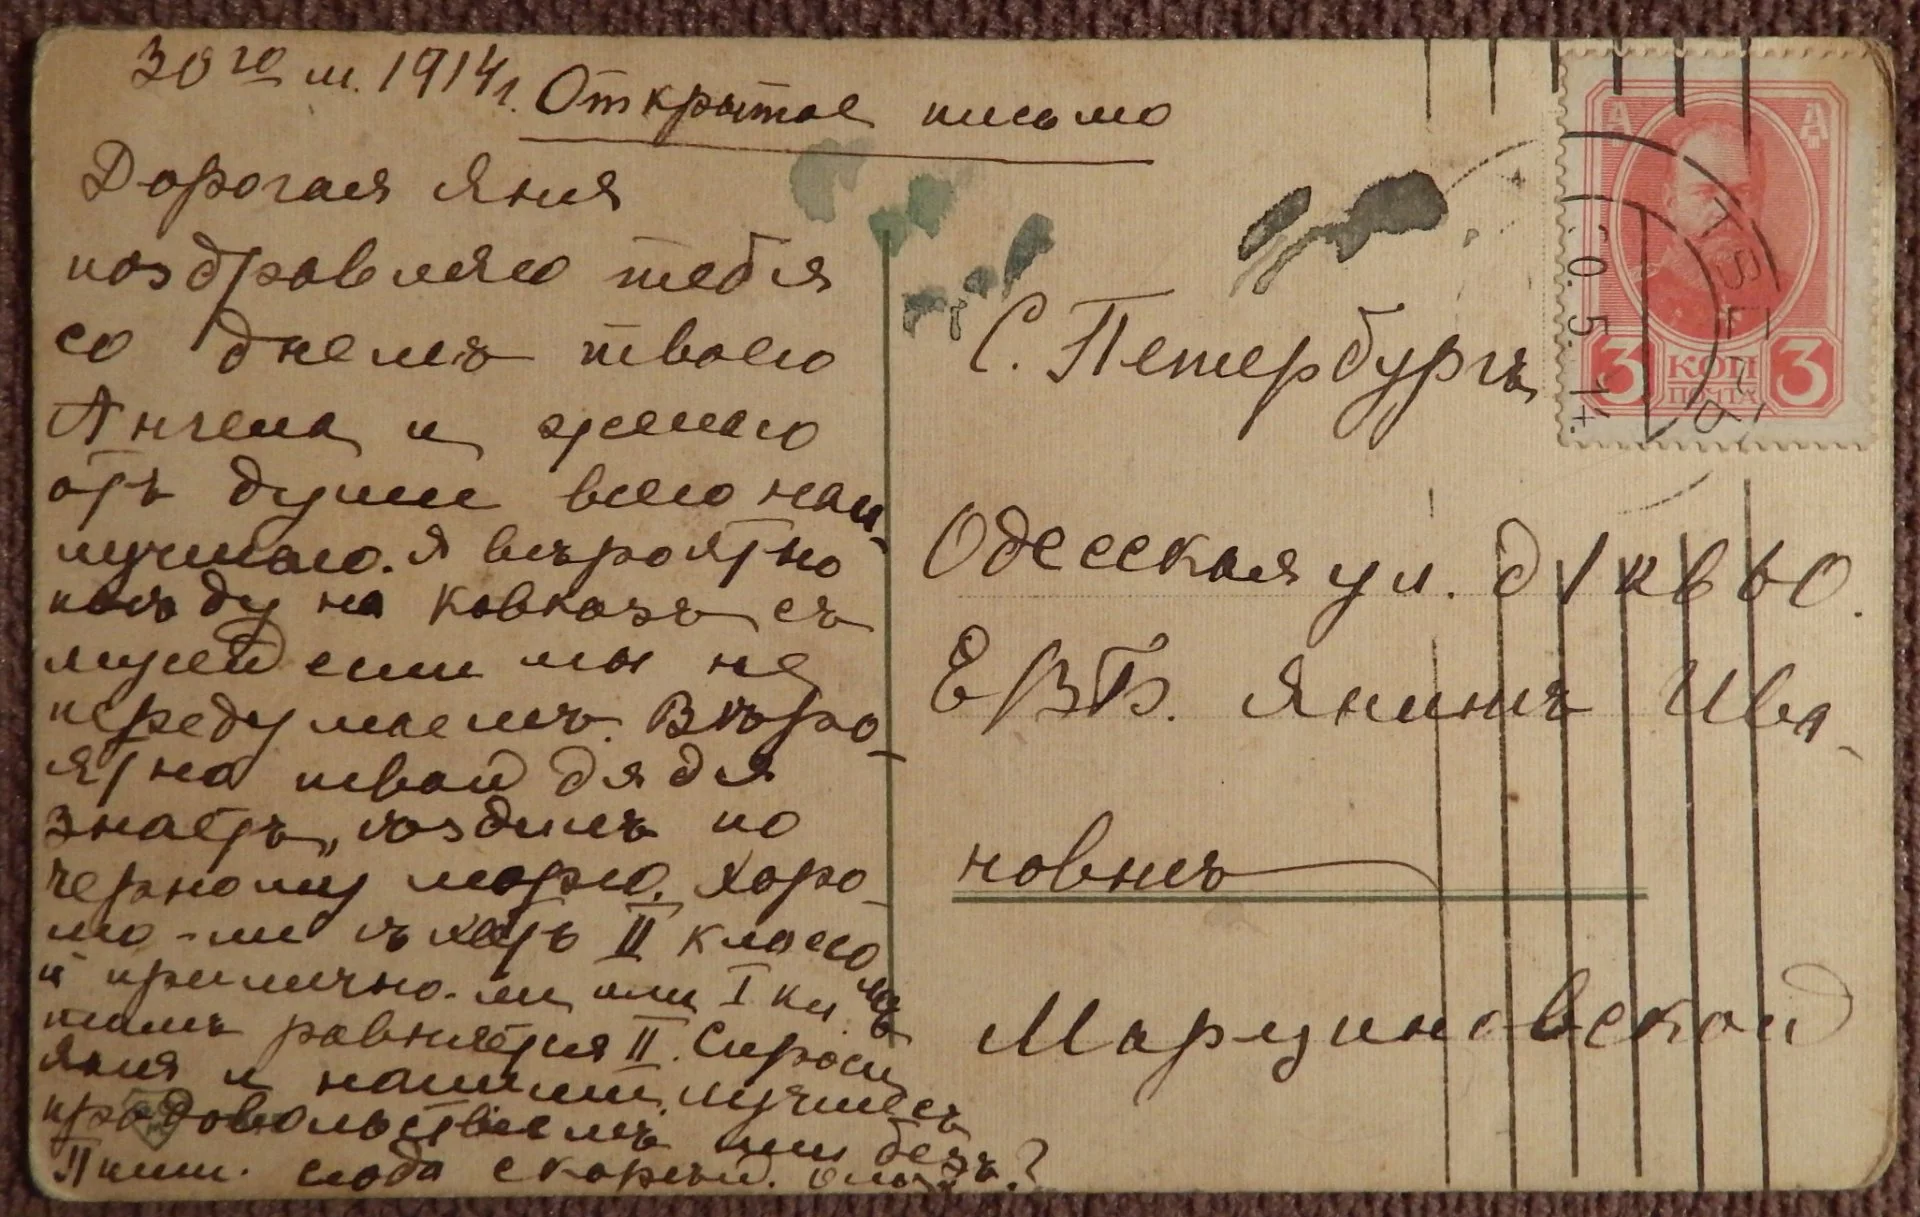 30го м. 1914 г.
Открытое письмо
Дорогая Яня
поздравляю тебя
со днемъ твоего
Ангела и желаю
отъ души всего наи-
лучшаго. Я вѣроятно
поѣду на Кавказъ съ
мужем если мы не
передумаемъ. Вѣро-
ятно твой дядя
знаетъ, ѣздитъ по
черному морю. Хоро-
шо-ли ѣхать II классомъ
и прилично-ли или I кл.
равняется II. Спроси
Яня и напиши, лучше съ
продовольствіемъ или безъ?
Пиши сюда скорѣй.
С. Петербургъ
Одесская ул. д 1 кв 60.
ЕВБ. Янинѣ Ива-
новнѣ
Марциновской
3 КОП 3
ПОЧТА